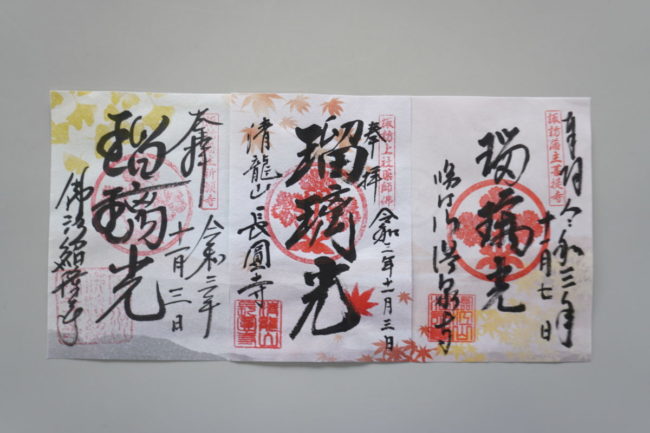 奉拝
諏訪藩主菩提寺
令和三年
十一月七日
瑠璃光
臨江山温泉寺
奉拝
諏訪上社薬師佛
令和二年十一月三日
瑠璃光
清龍山長圓寺
奉拝
令和二年
十一月三日
瑠璃光